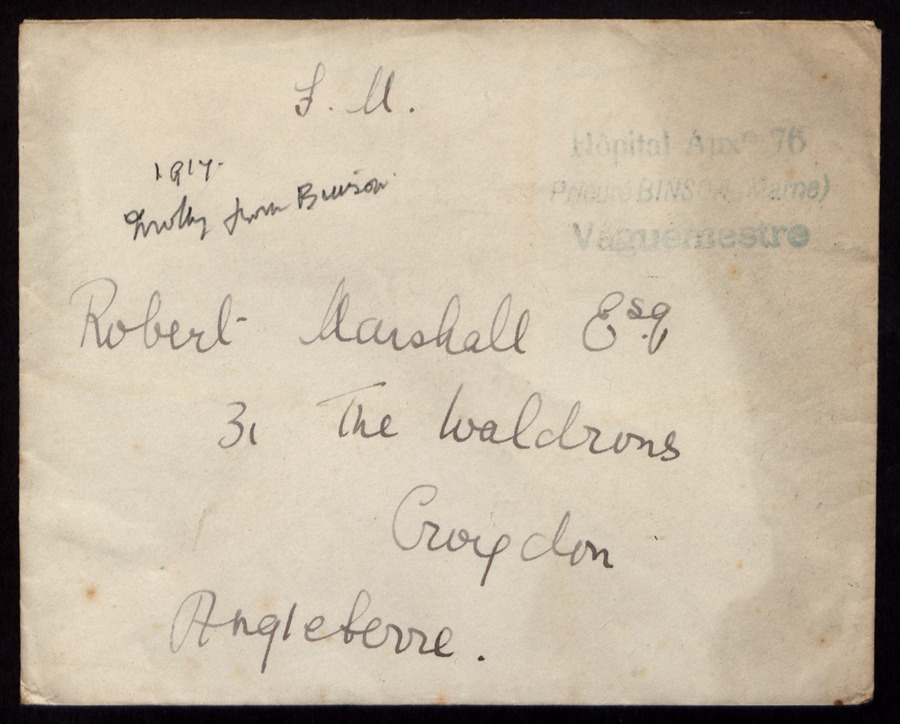 F. M.
Hôpital Auxre 76
Prieuré BINSON (Marne)
Vaguemestre
1917.
from Binson
Robert Marshall Esq
31 The Waldrons
Croydon
Angleterre.